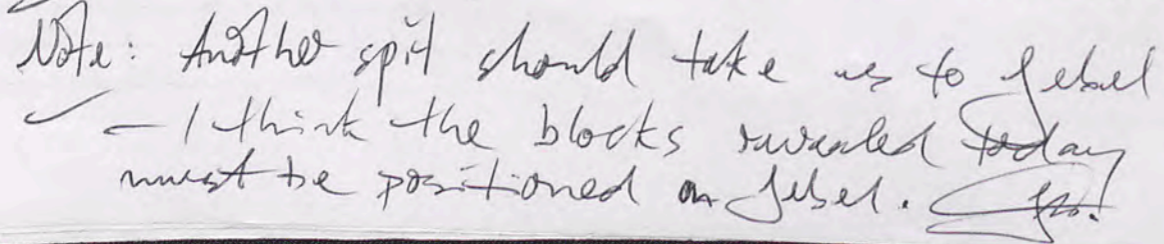 Note: Another spit should take us to Jebel
- I think the blocks revealed today
must be positioned on Jebel.